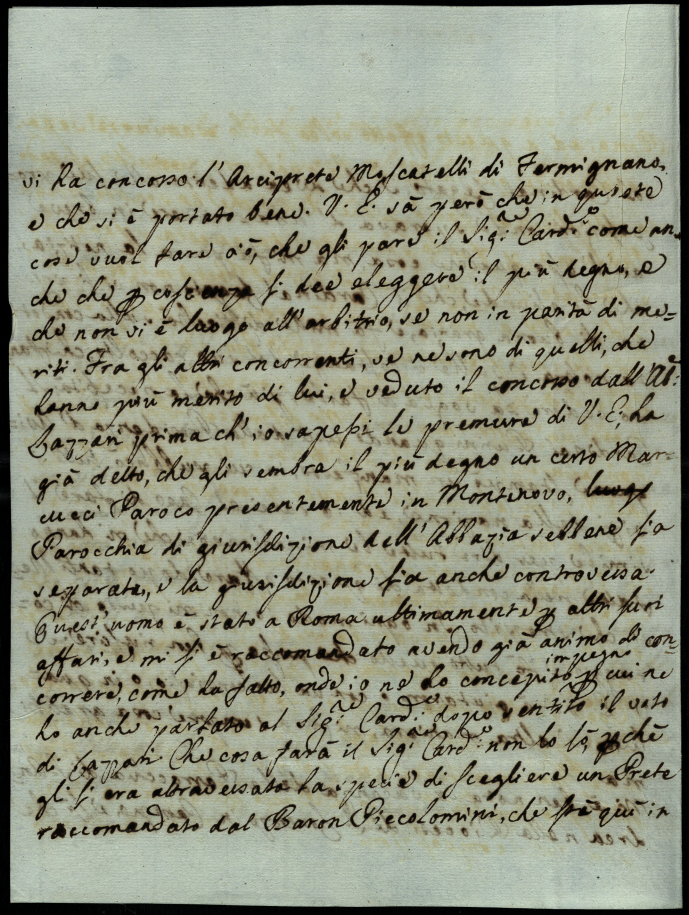 vi ha concorso l'Arciprete Moscatelli di Fermignano,
e che si è portato bene. V. E. sà però che in queste
cose vuol fare ciò, che gli pare il Sig.r Card.e come an=
che che p coscienza si dee eleggere il più degno, e
che non vi è luogo all'arbitrio, se non in parità di me=
riti. Fra gli altri concorrenti, ve ne sono di quelli, che
hanno più merito di lui, e veduto il concorso dall'Ab:
Lazzari prima ch'io sapessi le premure di V. E; ha
già detto, che gli sembra il più degno un certo Mar=
cucci Paroco presentemente in Montenovo,
Parocchia di giurisdizione dell'Abbazia sebbene sia
separata, e la giurisdizione sia anche controversa.
Quest'uomo è stato a Roma ultimamente p altri suoi
affari, e mi si è raccomandato avendo già animo di con=
correre, come ha fatto, onde io ne ho concepito impegno p cui ne
ho anche parlato al Sig.r Card.e dopo sentito il voto
di Lazzari. Che cosa farà il Sig.r Card.e non lo sò, pchè
gli si era attraversata la specie di scegliere un Prete
raccomandato dal Baron Piccolomini, che stà quì in